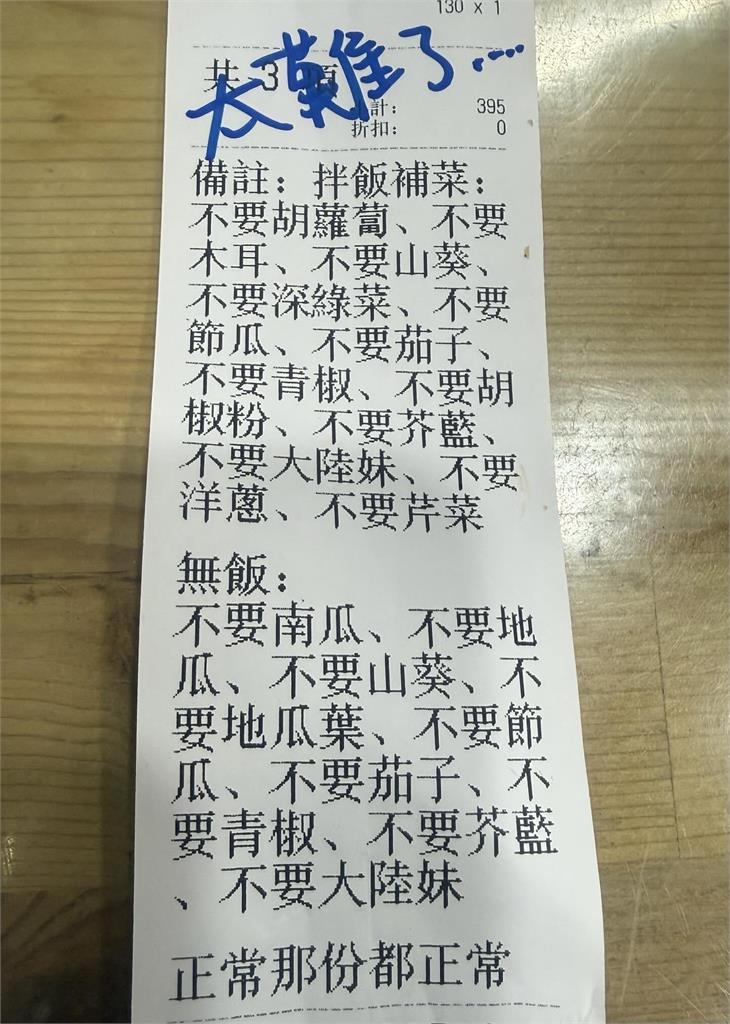 130 x 1
太難了....
共 3 項
小計: 395
折扣: 0
備註: 拌飯補菜:
不要胡蘿蔔、不要
木耳、不要山葵、
不要深綠菜、不要
節瓜、不要茄子、
不要青椒、不要胡
椒粉、不要芥藍、
不要大陸妹、不要
洋蔥、不要芹菜
無飯:
不要南瓜、不要地
瓜、不要山葵、不
要地瓜葉、不要節
瓜、不要茄子、不
要青椒、不要芥藍
、不要大陸妹
正常那份都正常